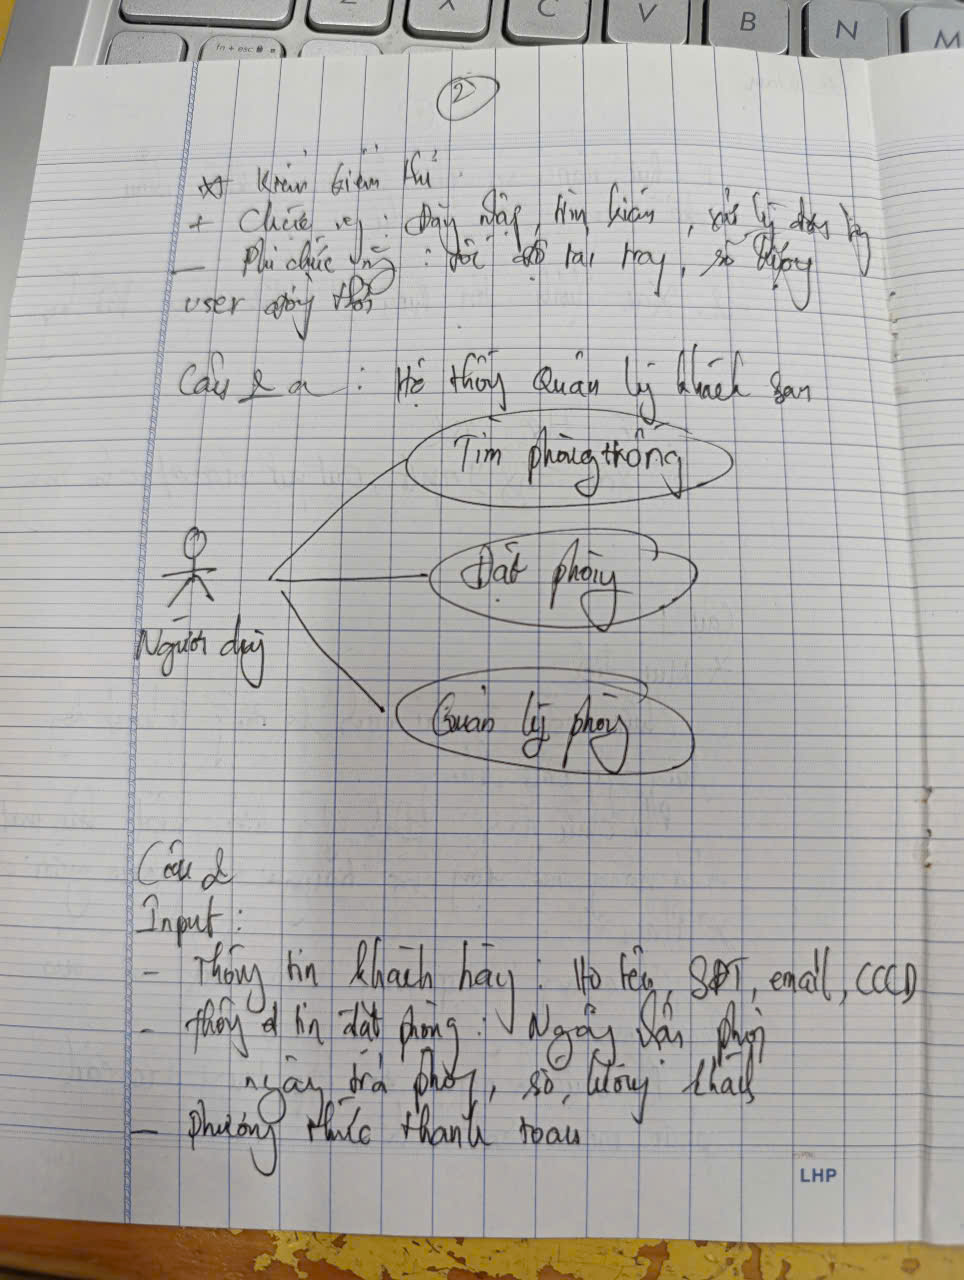 Z X C V B N M
fn + esc
2
* Kiểm
+ Chức : Đăng nhập, tìm kiếm, xử lý đơn
- Phi chức : tốc độ tải trang, số lượng
user đồng thời
Câu 2 a : Hệ thống Quản lý khách sạn
Tìm phòng trống
Đặt phòng
Người dùng
Quản lý phòng
Câu 2
Input :
- Thông tin khách hàng : Họ tên, SĐT, email, CCCD
- thông tin đặt phòng : Ngày phòng
ngày trả phòng, số lượng khách
- phương thức thanh toán
LHP